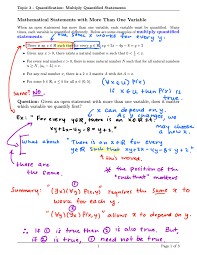 Topic 3 - Quantification: Multiply Quantified Statements
Mathematical Statements with More Than One Variable
When an open statement has more than one variable, each variable must be quantified. Many
times, each variable is quantified differently. Below are some examples of multiply quantified
statements
one same x works for every y.
• There is an x ∈ ℝ such that for every y ∈ ℝ, xy + 2x − 4y − 8 = y + 2
• Given any x > 0, there exists a natural number n such that
• For every real number x > 0, there is some natural number N such that for all natural numbers
• For any real number x, there is a 2 × 2 matrix A with det A = x.
• For some M ∈ ℝ, M ≥ x² for all x ∈ (0, 5).
(∀x ∈ U) P(x)
Same? NO.
if x ∈ U then P(x) is true.
Question: Given an open statement with more than one variable, does it matter
which variable we quantify first?
x can depend on y.
As y changes, we
may choose
a new x.
Ex: "For every y ∈ ℝ, there is an x ∈ ℝ st.
xy + 2x − 4y − 8 = y + 2."
What about "There is an x ∈ ℝ for every
y ∈ ℝ such that xy + 2x − 4y − 8 = y + 2."
this moved.
there are
the same.
* the position of the
"such that" matters
Summary: "(∃x)(∀y) P(x,y)" requires the same x to
work for each y.
"(∀y)(∃x) P(x,y)" allows x to depend on y.
∴ If ① is true then ② is also true. But,
if ② is true, ① need not be true.
1
Page 1 of 3